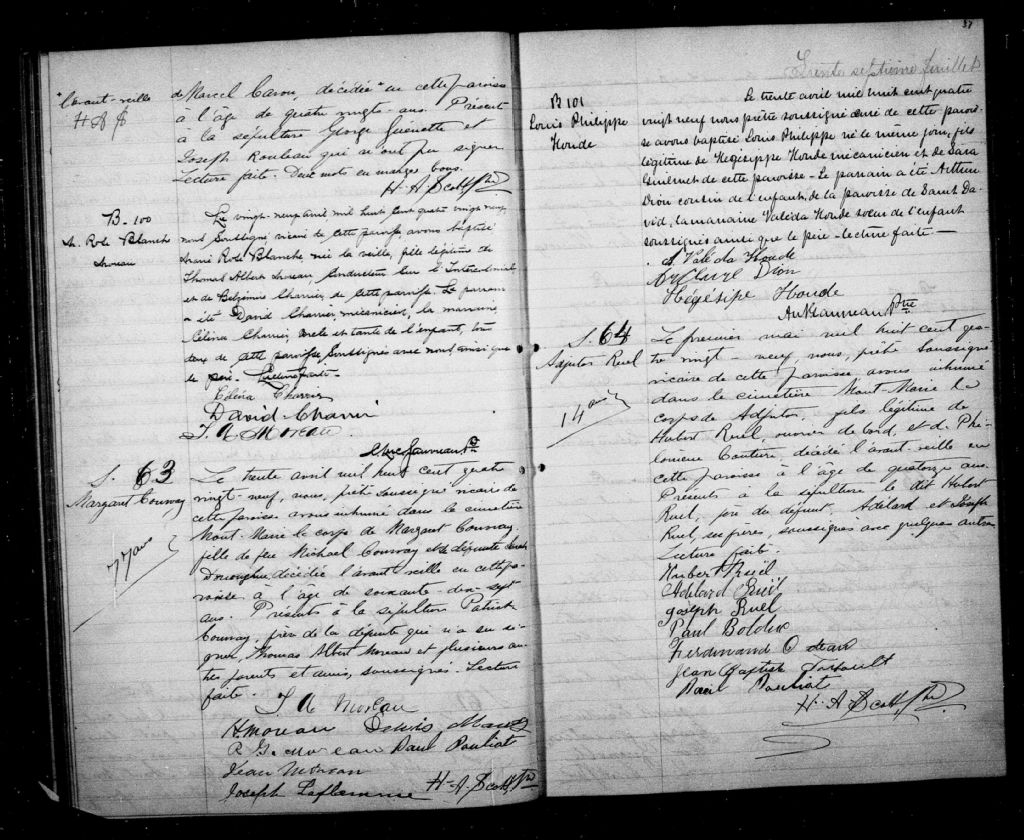 "l'avant-veille
H A S
de Marcel Caron, décédée " en cette paroisse
à l'âge de quatre vingts ans. Présents
à la sépulture George Guenette et
Joseph Rouleau qui n'ont pu signer
Lecture faite. Deux mots en marges bons.
H. A Scott Ptre
B. 100
M. Rose Blanche
Moreau
Le vingt-neuf avril mil huit cent quatre vingt neuf,
nous soussigné vicaire de cette paroisse, avons baptisé
Marie Rose Blanche née la veille, fille légitime de
Thomas Albert Moreau, conducteur sur l'Intercolonial
et de Charrier, de cette paroisse. Le parrain
a été David Charrier, mécanicien, la marraine,
Célina Charrier, oncle et tante de l'enfant, tous
deux de cette paroisse soussignés avec nous ainsi que
le père. Lecture faite.
Célina Charrier
David Charrier
T. A Moreau
S. 63
Margaret Conway
77 ans
Le trente avril mil huit cent quatre
vingt-neuf, nous, prêtre soussigné vicaire de
cette paroisse avons inhumé dans le cimetière
Mont-Marie le corps de Margaret Conway
fille de feu Michael Conway et de défunte
décédée l'avant veille en cette pa-
roisse à l'âge de soixante-dix-sept
ans. Présents à la sépulture Patrick
Conway, frère de la défunte qui n'a su si-
gner, Thomas Albert Moreau et plusieurs au-
tres parents et amis, soussignés. Lecture
faite.
T A Moreau
H Moreau
P. G. Moreau Paul Pouliot
Jean
Joseph Laflamme H. A. Scott Ptre
37
Trente septième feuillet
B 101
Louis Philippe
Houde
Le trente avril mil huit cent quatre
vingt neuf nous prêtre soussigné curé de cette parois-
se avons baptisé Louis Philippe né le même jour, fils
légitime de Hégésippe Houde mécanicien et de Sara
Guilmet de cette paroisse - Le parrain a été Arthur
Dion cousin de l'enfant, de la paroisse de Saint Da-
vid, la marraine Valéda Houde soeur de l'enfant
soussignés ainsi que le père - lecture faite -
Valéda Houde
Dion
Hégésipe Houde
Ptre
S. 64
Adjutor Ruel
14 ans
Le premier mai mil huit cent qua-
tre vingt-neuf, nous, prêtre soussigné
vicaire de cette paroisse avons inhumé
dans le cimetière Mont-Marie le
corps de Adjutor, fils légitime de
Hubert Ruel, ouvrier de bord, et de Phi-
lomène Couture, décédé l'avant-veille en
cette paroisse à l'âge de quatorze ans.
Présents à la sépulture le dit Hubert
Ruel, père du défunt, Adélard et Joseph
Ruel, ses frères, soussignés avec quelques autres
Lecture faite.
Hubert Ruël
Adélard Ruël
Joseph Ruel
Paul Bolduc
Ferdinand O
Jean Baptiste
Paul Pouliot
H. A Scott Ptre